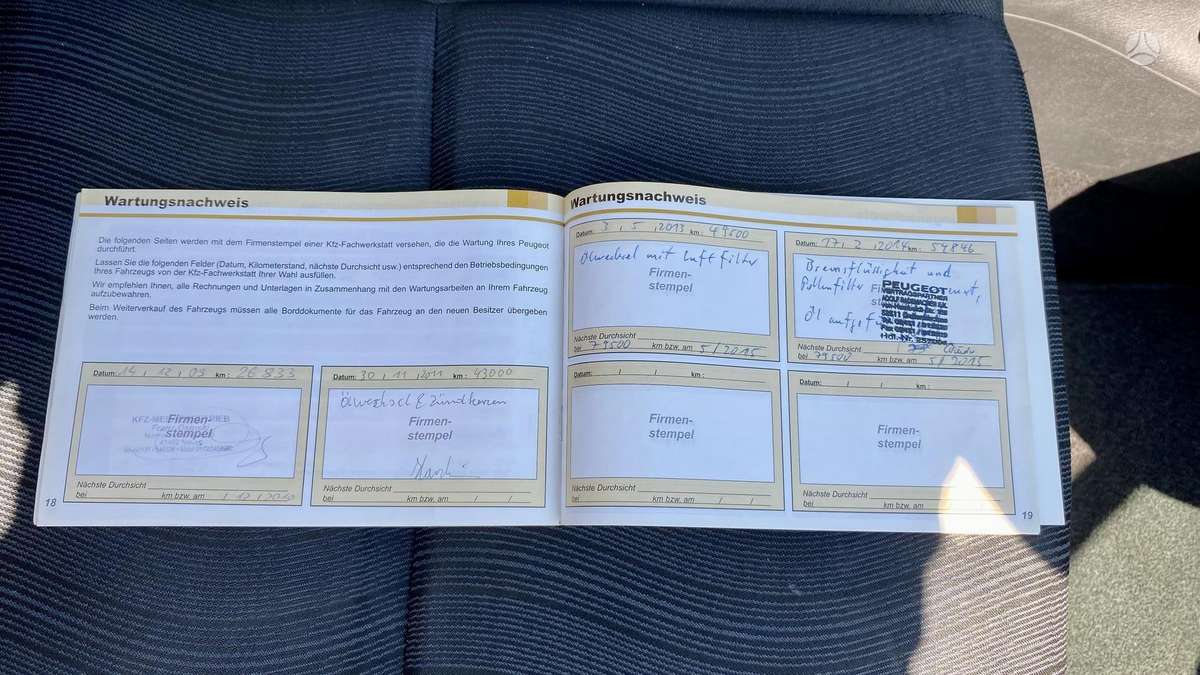 Wartungsnachweis
Die folgenden Seiten werden mit dem Firmenstempel einer Kfz-Fachwerkstatt versehen, die die Wartung Ihres Peugeot
durchführt.
Lassen Sie die folgenden Felder (Datum, Kilometerstand, nächste Durchsicht usw.) entsprechend den Betriebsbedingungen
Ihres Fahrzeugs von der Kfz-Fachwerkstatt Ihrer Wahl ausfüllen.
Wir empfehlen Ihnen, alle Rechnungen und Unterlagen in Zusammenhang mit den Wartungsarbeiten an Ihrem Fahrzeug
aufzubewahren.
Beim Weiterverkauf des Fahrzeugs müssen alle Borddokumente für das Fahrzeug an den neuen Besitzer übergeben
werden.
Datum: 14 / 12 / 09 km: 26 833
Firmen-
stempel
Nächste Durchsicht
bei km bzw. am / 12 / 2010
Datum: 30 / 11 / 2011 km: 43000
Ölwechsel & Zündkerzen
Firmen-
stempel
Nächste Durchsicht
bei km bzw. am / /
18
Wartungsnachweis
Datum: 3 / 5 / 2013 km: 49500
Ölwechsel mit Luftfilter
Firmen-
stempel
Nächste Durchsicht
bei 79500 km bzw. am 5/2015
Datum: 17 / 2 / 2014 km: 54846
Bremsflüssigkeit und
Pollenfilter
PEUGEOT
VERTRAGSPARTNER
Öl
Nächste Durchsicht
bei 79500 km bzw. am 5/2015
Datum: / / km:
Firmen-
stempel
Nächste Durchsicht
bei km bzw. am / /
Datum: / / km:
Firmen-
stempel
Nächste Durchsicht
bei km bzw. am / /
19